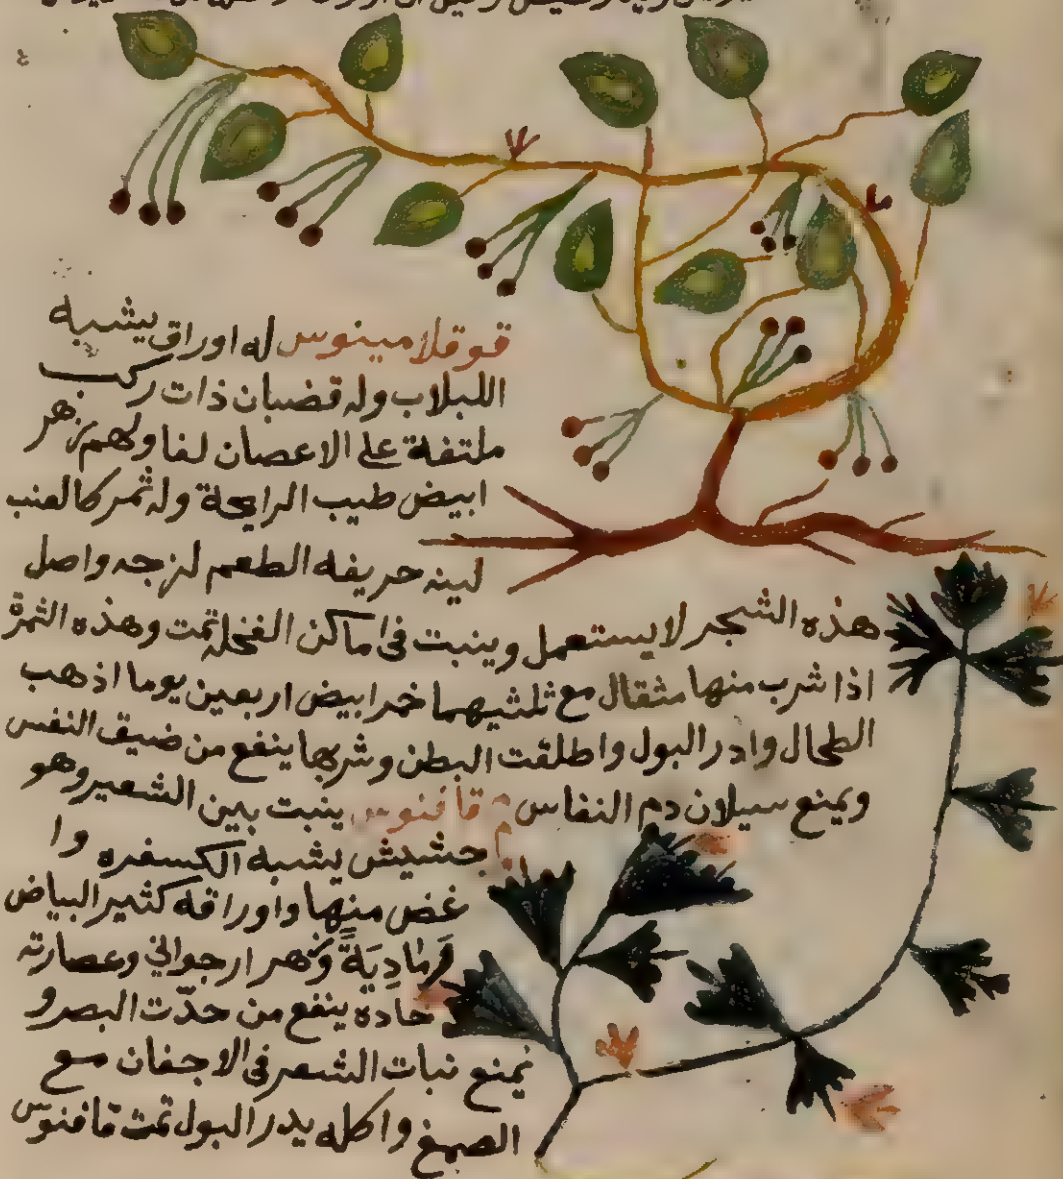 قوقلامينوس له اوراق يشبه
اللبلاب وله قضبان ذات ركب
ملتفة على الاعصان لفا ولهم زهر
ابيض طيب الرايحة وله ثمر كالعنب
لينه حريفه الطعم لزجه واصل
هذه الشجر لا يستعمل وينبت في اماكن تمت وهذه الثمرة
اذا شرب منها مثقال مع ثلثيهما خمر ابيض اربعين يوما اذهب
الطحال وادر البول واطلقت البطن وشربها ينفع من ضيق النفس
ويمنع سيلان دم النفاس قافنوس ينبت بين الشعير وهو
حشيش يشبه الكسفره وا
غض منها واوراقه كثير البياض
رمادية وزهر ارجواني وعصارته
حاده ينفع من حدّت البصر و
يمنع نبات الشعر في الاجفان مع
الصمغ واكله يدر البول تمت قافنوس